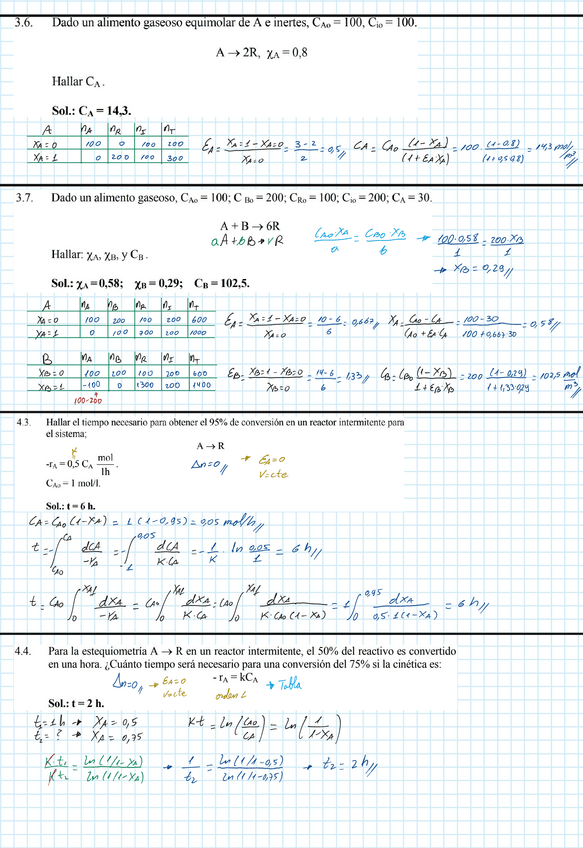 3.6. Dado un alimento gaseoso equimolar de A e inertes, C_Ao = 100, C_io = 100.
A → 2R, χ_A = 0,8
Hallar C_A .
Sol.: C_A = 14,3.
A | n_A | n_R | n_I | n_T
X_A = 0 | 100 | 0 | 100 | 200
X_A = 1 | 0 | 200 | 100 | 300
ε_A = (X_A=1 - X_A=0)/(X_A=0) = (3-2)/2 = 0,5// C_A = C_A0 (1-X_A)/(1+ε_A X_A) = 100 · (1-0,8)/(1+0,5·0,8) = 14,3 mol/m³
3.7. Dado un alimento gaseoso, C_Ao = 100; C_Bo = 200; C_Ro = 100; C_io = 200; C_A = 30.
A + B → 6R
aA + bB → rR
C_A0 X_A/a = C_B0 X_B/b → 100·0,58/1 = 200 X_B/1
→ X_B = 0,29//
Hallar: χ_A, χ_B, y C_B .
Sol.: χ_A = 0,58; χ_B = 0,29; C_B = 102,5.
A | n_A | n_B | n_R | n_I | n_T
X_A = 0 | 100 | 200 | 100 | 200 | 600
X_A = 1 | 0 | 100 | 700 | 200 | 1000
ε_A = (X_A=1 - X_A=0)/(X_A=0) = (10-6)/6 = 0,667// X_A = (C_A0 - C_A)/(C_A0 + ε_A C_A) = (100-30)/(100+0,667·30) = 0,58//
B | n_A | n_B | n_R | n_I | n_T
X_B = 0 | 100 | 200 | 100 | 200 | 600
X_B = 1 | -100 | 0 | 1300 | 200 | 1400
100-200
ε_B = (X_B=1 - X_B=0)/(X_B=0) = (14-6)/6 = 1,33// C_B = C_B0 (1-X_B)/(1+ε_B X_B) = 200 (1-0,29)/(1+1,33·0,29) = 102,5 mol/m³
4.3. Hallar el tiempo necesario para obtener el 95% de conversión en un reactor intermitente para
el sistema;
A → R
K
-r_A = 0,5 C_A mol/lh .
Δn = 0// → ε_A = 0
V = cte
C_Ao = 1 mol/l.
Sol.: t = 6 h.
C_A = C_A0 (1-X_A) = 1 (1-0,95) = 0,05 mol/h//
t = -∫_{C_A0}^{C_A} dC_A/-r_A = -∫_1^{0,05} dC_A/K·C_A = -1/K · ln 0,05/1 = 6 h//
t = C_A0 ∫_0^{X_A1} dX_A/-r_A = C_A0 ∫_0^{X_A1} dX_A/K·C_A = C_A0 ∫_0^{X_A1} dX_A/K·C_A0 (1-X_A) = 1 ∫_0^{0,95} dX_A/0,5·1(1-X_A) = 6 h//
4.4. Para la estequiometría A → R en un reactor intermitente, el 50% del reactivo es convertido
en una hora. ¿Cuánto tiempo será necesario para una conversión del 75% si la cinética es:
Δn = 0// → ε_A = 0
V = cte
- r_A = kC_A
orden 1
→ Tabla
Sol.: t = 2 h.
t_1 = 1 h → X_A = 0,5
t_2 = ? → X_A = 0,75
K·t = ln(C_A0/C_A) = ln(1/1-X_A)
K·t_1/K·t_2 = ln(1/1-X_A)/ln(1/1-X_A) → 1/t_2 = ln(1/1-0,5)/ln(1/1-0,75) → t_2 = 2 h//